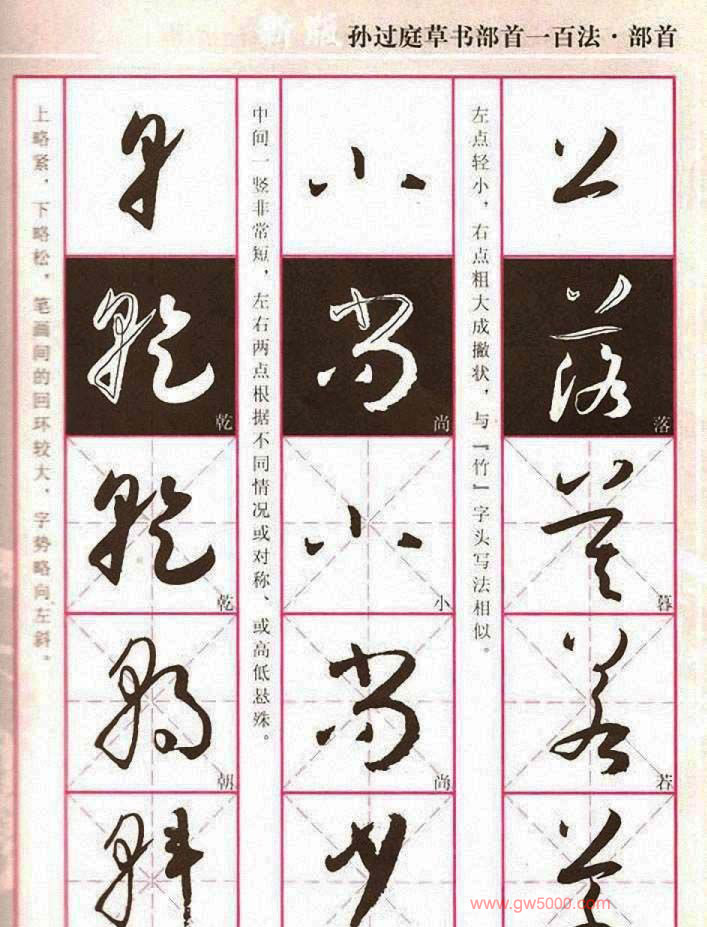 新版
孙过庭草书部首一百法·部首
落
暮
若
左点轻小，右点粗大成撇状，与『竹』字头写法相似。
尚
小
尚
中间一竖非常短，左右两点根据不同情况或对称、或高低悬殊。
乾
乾
朝
上略紧，下略松，笔画间的回环较大，字势略向左斜。
www.gw5000.com